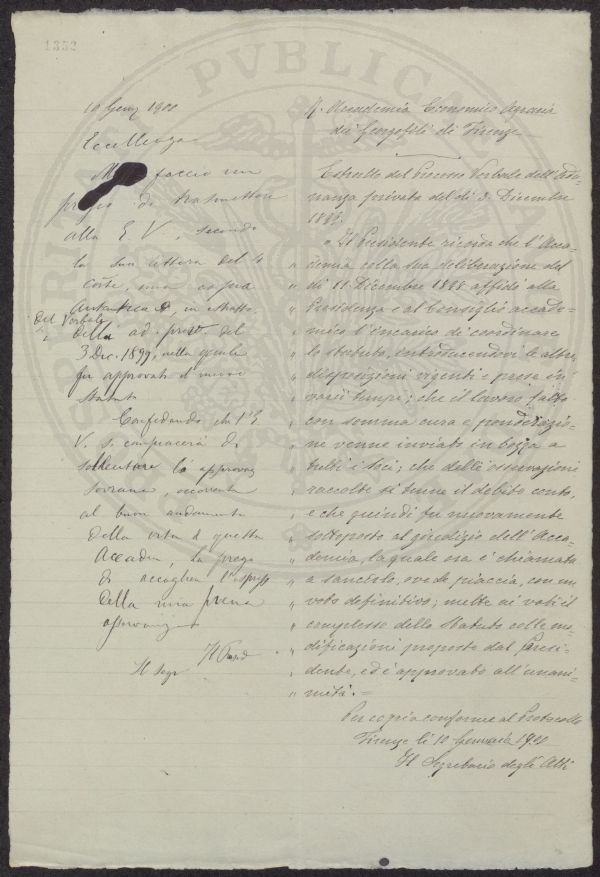 1352
10 Genn 1900
Eccellenza
Mi faccio un
pregio di trasmettere
alla E V, secondo
la sua lettera del 4
corte, una copia
autentica, in estratto,
del Verbale
della ad. priv. del
3 Dic. 1899, nella quale
fu approvato il nuovo
Statuto
Confidando che l'E
V. si compiacerà di
sollecitare la approvaz
sovrana, occorrente
al buon andamento
della vita di questa
Accadia, La prego
di accogliere l'espress
della mia piena
osservanza
Il Presid
Il Segr
R. Accademia Economico Agraria
dei Georgofili di Firenze
Estratto del Processo Verbale dell'Adu-
nanza privata del dì 3 Dicembre
1899.
" Il Presidente ricorda che l'Acca-
" demia colla sua deliberazione del
" dì 11 Dicembre 1898 affidò alla
" Presidenza e al Consiglio accade-
" mico l'incarico di coordinare
" lo statuto, introducendovi le altre
" disposizioni vigenti e prese in
" varii tempi; che il lavoro fatto
" con somma cura e ponderazio-
" ne venne inviato in bozza a
" tutti i Soci; che delle osservazioni
" raccolte si tenne il debito conto,
" e che quindi fu nuovamente
" sottoposto al giudizio dell'Acca-
" demia, la quale ora è chiamata
" a sancirlo, ove le piaccia, con un
" voto definitivo; mette ai voti il
" complesso dello Statuto colle mo-
" dificazioni proposte dal Presi-
" dente, ed è approvato all'unani-
" mità. =
Per copia conforme al Protocollo
Firenze lì 10 Gennaio 1900
Il Segretario degli Atti